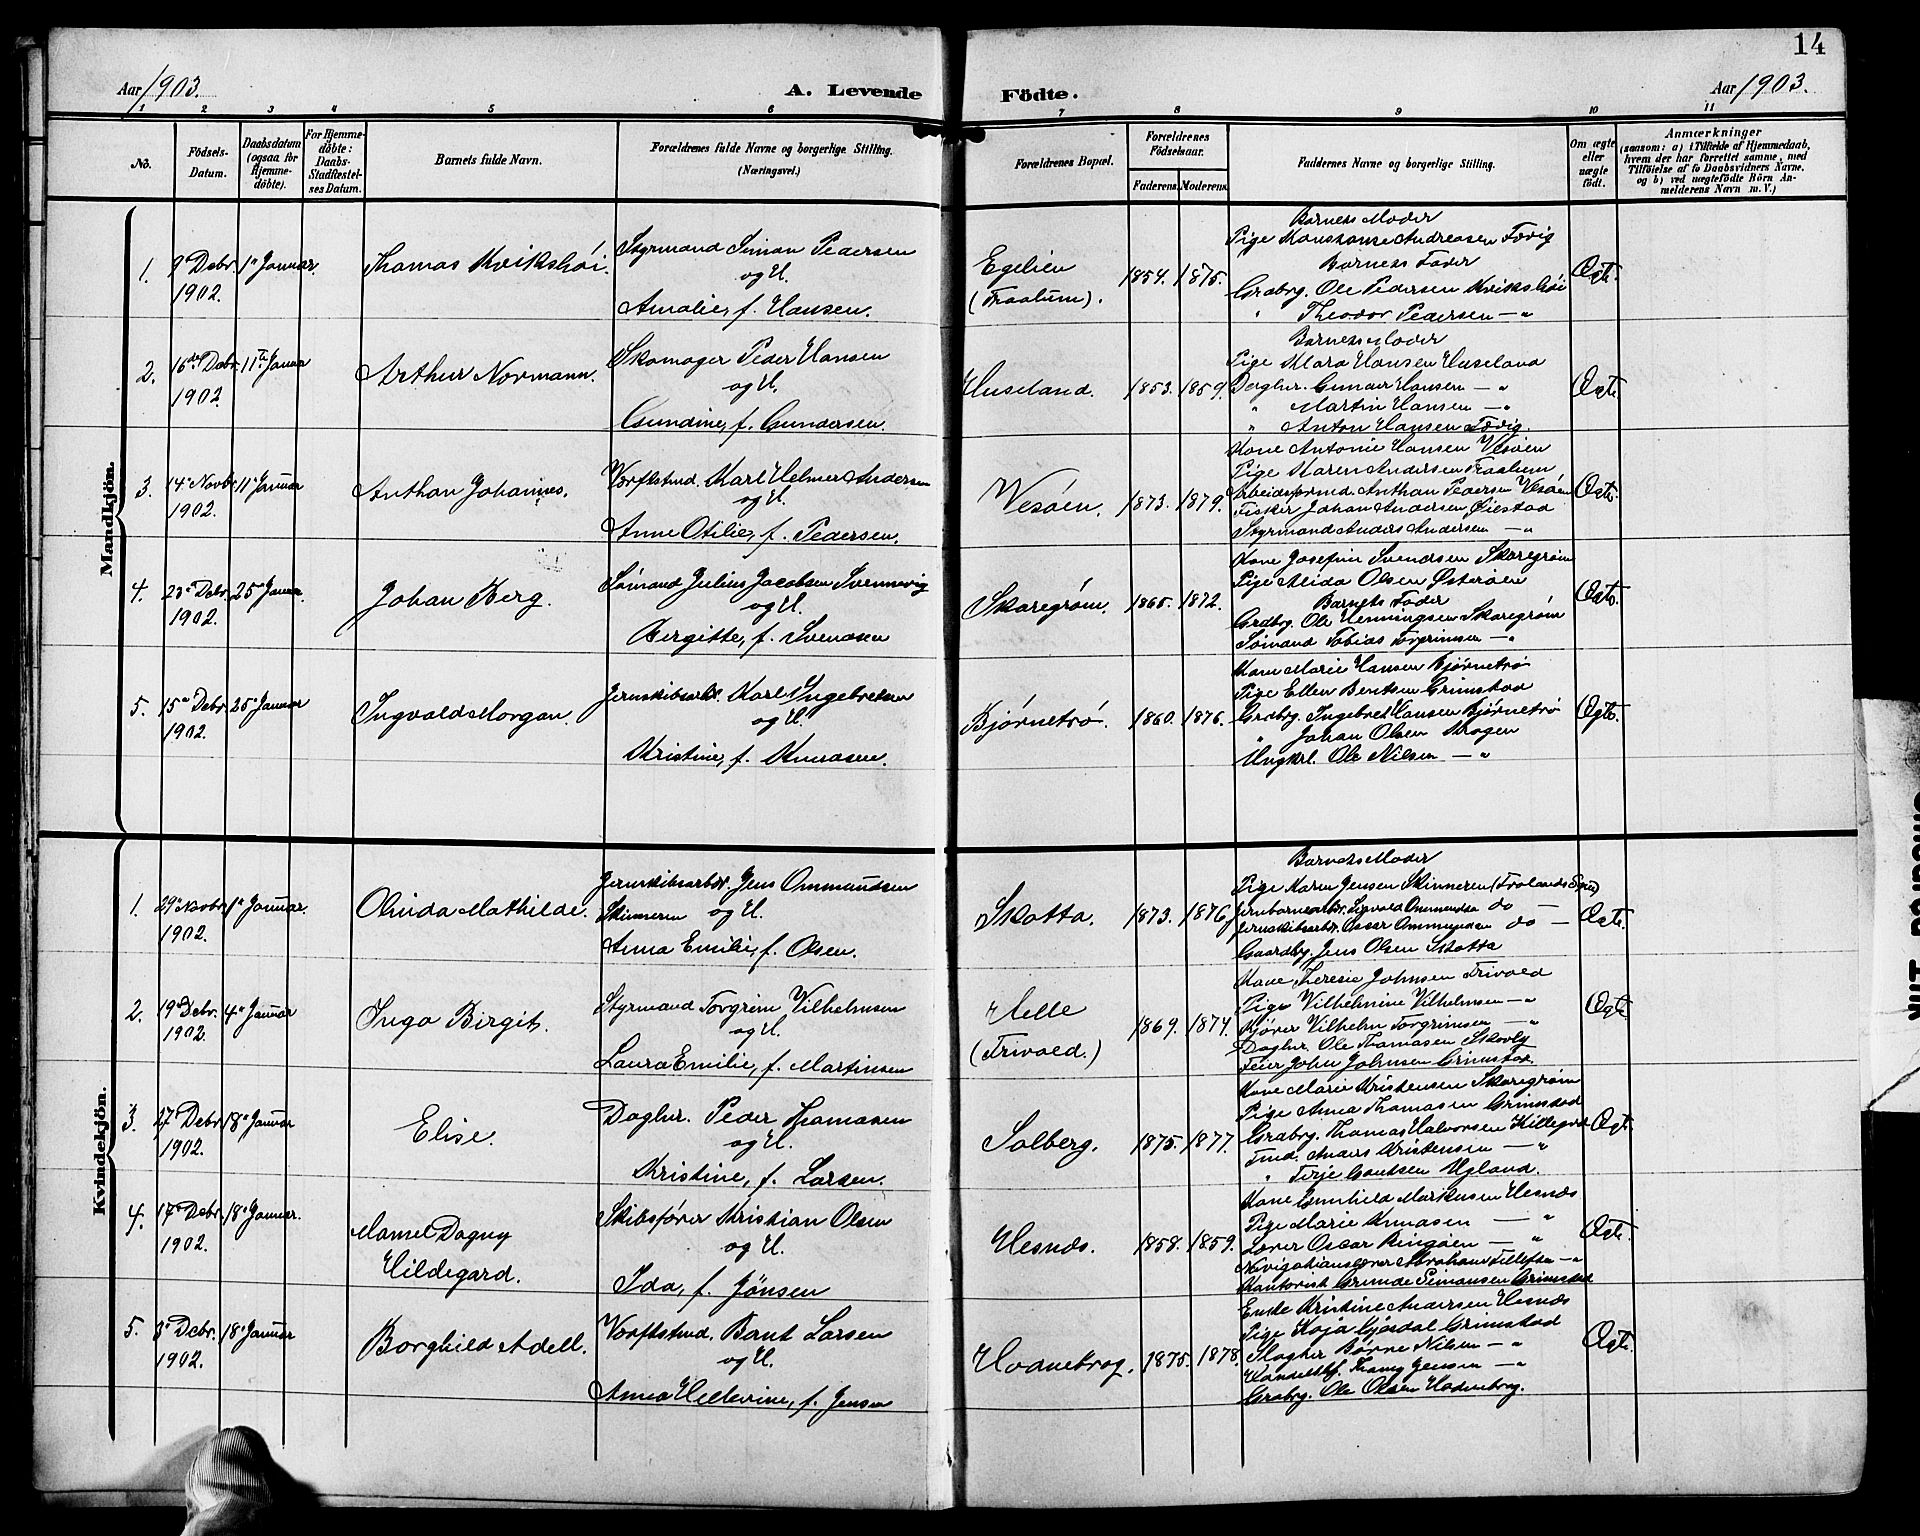 14
Aar 1903.
A. Levende Födte.
Aar 1903.
1 2 3 4 5 6 7 8 9 10 11
No.
Födsels-Datum.
Daabsdatum (ogsaa for Hjemmedöbte).
For Hjemmedöbte: Daabs-Stadfestelses Datum.
Barnets fulde Navn.
Forældrenes fulde Navne og borgerlige Stilling. (Næringsvei.)
Forældrenes Bopæl.
Forældrenes Födselsaar.
Faderens. Moderens.
Faddernes Navne og borgerlige Stilling.
Om ægte eller uægte födt.
Anmærkninger
(saasom: a) i Tilfælde af Hjemmedaab, hvem der har forrettet samme, med Tilföielse af to Daabsvidners Navne, og b) ved uægtefödte Börn Anmelderens Navn m. V.)
Mandkjön.
1. 9 Debr. 1902. 1ste Januar. Thomas Kvikshöi.
Styrmand Simon Pedersen
og H.
Amalie, f. Hansen.
Egelien (Fraalum). 1854. 1875.
Barnets Moder
Pige Konstanse Andreasen Fævig
Barnets Fader
Grdbrg. Ole Pedersen Kvikshöi
" Theodor Pedersen — "
Ægte.
2. 16de Debr. 1902. 11te Januar Arthur Normann.
Skomager Peder Hansen
og H.
Gundine, f. Gundersen.
Huseland. 1853. 1859.
Barnets Moder
Pige Mara Hansen Huseland
Daglnr. Gunder Hansen — "
" Martin Hansen — "
" Anton Hansen Fævig.
Ægte.
3. 14de Novbr. 1902. 11te Januar Anthon Johannes.
Værftstmd. Karl Helmer Andersen
og H.
Anne Otilie, f. Pedersen.
Vesöen. 1873. 1879.
Kone Antonie Hansen Vesöen
Pige Maren Andersen Fraalum
Arbeidsformd. Anthon Pedersen Vesöen
Fisker Johan Andersen Öiestad
Styrmand Anders Andersen — "
Ægte.
4. 23de Debr. 1902. 25de Januar. Johan Berg.
Sömand Julius Jacobsen Svennevig
og H.
Bergitte, f. Svendsen
Skaregröm. 1865. 1872.
Kone Josefin Svendsen Skaregröm
Pige Alida Olsen Österöen
Barnets Fader
Grdbrg. Ole Henningsen Skaregröm
Sömand Tobias Torgrimsen — "
Ægte.
5. 15de Debr. 1902. 25de Januar Ingvald Morgan.
Jernskibsarbr. Karl Ingebretsen
og H.
Kristine, f. Knudsen.
Björneträ. 1860. 1876.
Kone Marie Hansen Björneträ
Pige Ellen Bentsen Grimstad
Grdbrg. Ingebret Hansen Björneträ
" Johan Olsen Kragen
Ungkrl. Ole Nilsen — "
Ægte.
Kvindekjön.
1. 29de Novbr. 1902. 1ste Januar. Olinda Mathilde.
Jernskibsarbr. Jens Ommundsen
Skinneren og H.
Anna Emilie, f. Olsen.
Skotta. 1873. 1876.
Barnets Moder
Pige Karen Jensen Skinneren (Frolands Sogn)
Jernbanearbr. Sigvald Ommundsen do —
Jernskibsarbr. Oscar Ommundsen do —
Gaardbrg. Jens Olsen Skotta
Ægte.
2. 19de Debr. 1902. 4de Januar Inga Birgit.
Styrmand Torgrim Vilhelmsen
og H.
Laura Emilie, f. Martinsen
Helle (Frivold.) 1869. 1874.
Kone Theresie Johnsen Frivold
Pige Vilhelmine Vilhelmsen — "
Kjörer Vilhelm Torgrimsen — "
Daglnr. Ole Thomasen Skovly
Feier John Johnsen Grimstad.
Ægte
3. 27de Debr. 1902. 18de Januar Elise.
Daglnr. Peder Thomasen
og H.
Kristine, f. Larsen.
Solberg. 1875. 1877.
Kone Marie Kristensen Skaregröm
Pige Anna Thomasen Grimstad
Grdbrg. Thomas Halvorsen Killegrd
Tmd. Anders Kristensen — "
" Terje Gautsen Ugland.
Ægt.
4. 17de Debr. 1902. 18de Januar. Mamel Dagny Hildegard.
Skibsförer Kristian Olsen
og H.
Ida, f. Jönsen
Hesnæs. 1858. 1859.
Kone Gunhild Markusen Hesnæs
Pige Marie Knudsen — "
Lærer Oscar Ringöen — "
Navigationslærer Abraham Tellefsen — "
Kontorist Grunde Simonsen Grimstad
Ægte.
5. 3de Debr. 1902. 18de Januar Borghild Adell.
Værftstmd. Bernt Larsen
og H.
Anna Hellevine, f. Jensen
Hodnebrog. 1875. 1878.
Enke Kristine Andersen Hesnæs
Pige Kaja Gjördal Grimstad
Skoghr. Börre Nilsen — "
Handelsbf. Jensen — "
Grdbrg. Ole Olsen Hodnebrog.
Ægte.